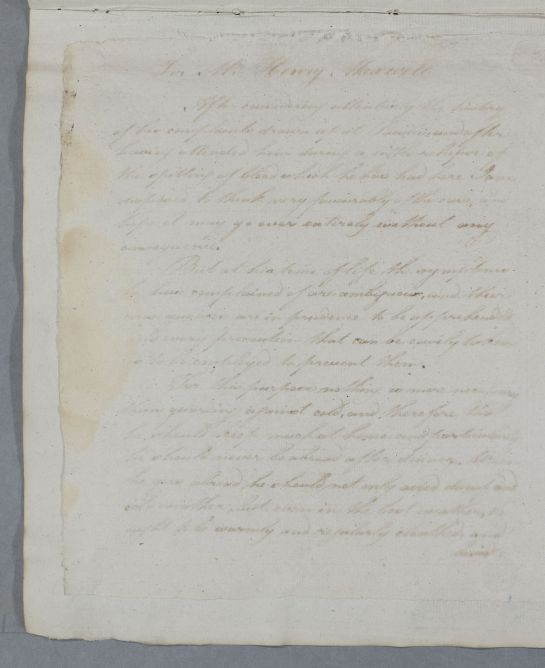 For Mr. Henry Maxwell
After considering attentively the history
of his complaints drawn up at and after
having attended him during a relapse of
the spitting of blood which he has had here I am
disposed to think very favourably of the case, and
hope it may go over entirely without any
consequence.
But at his time of life the symptoms
he has complained of are ambiguous, and their
consequences are in prudence to be apprehended
and every precaution that can be easily taken
to be employed to prevent them.
For this purpose nothing is more necessary
than guarding against cold, and therefore
he should keep much at home and particularly
he should never be abroad after dinner. When
he goes abroad, he should not only avoid damp and
cold weather, but even in the best weather, he
ought to be warmly and regularly cloathed, and